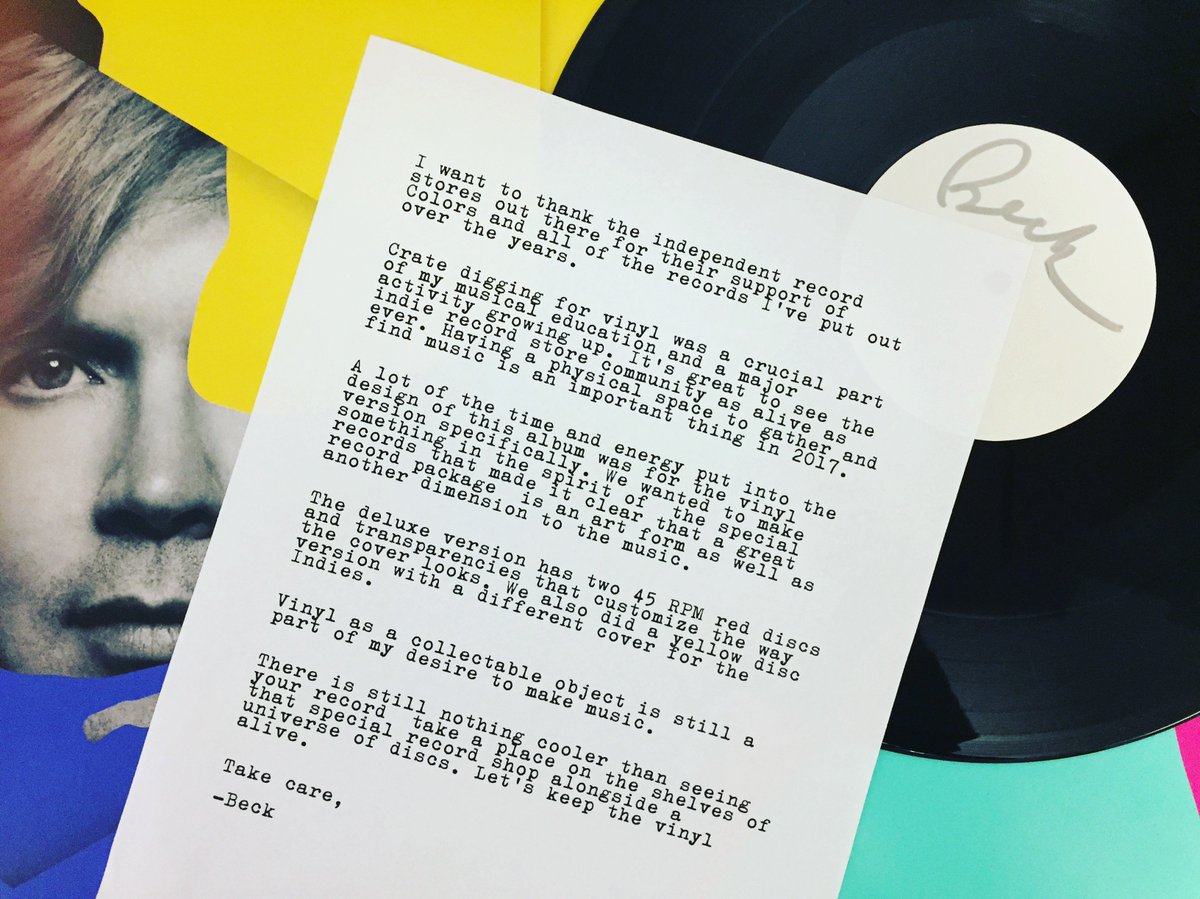 Beck
I want to thank the independent record
stores out there for their support of
Colors and all of the records I've put out
over the years.
Crate digging for vinyl was a crucial part
of my musical education and a major
activity growing up. It's great to see the
indie record store community as alive as
ever. Having a physical space to gather and
find music is an important thing in 2017.
A lot of the time and energy put into the
design of this album was for the vinyl
version specifically. We wanted to make
something in the spirit of the special
records that made it clear that a great
record package is an art form as well as
another dimension to the music.
The deluxe version has two 45 RPM red discs
and transparencies that customize the way
the cover looks. We also did a yellow disc
version with a different cover for the
Indies.
Vinyl as a collectable object is still a
part of my desire to make music.
There is still nothing cooler than seeing
your record take a place on the shelves of
that special record shop alongside a
universe of discs. Let's keep the vinyl
alive.
Take care,
-Beck